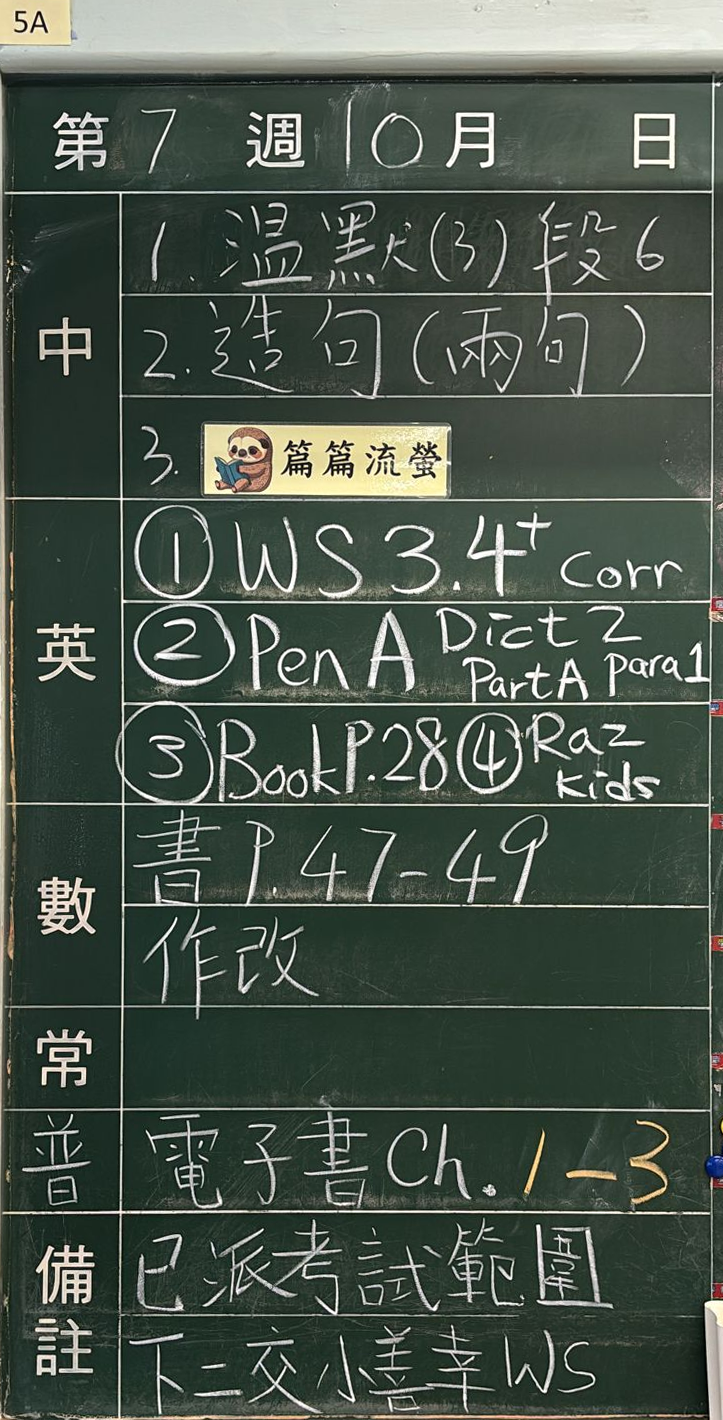 5A
第7週10月 日
中
1. 溫默(3)段6
2. 造句(兩句)
3. 篇篇流螢
英
① WS 3.4+ corr
② Pen A Dict 2 Part A para1
③ Book P.28 ④ Raz kids
數
書 P.47-49
作改
常
普
電子書 Ch. 1-3
備註
已派考試範圍
下二交小善幸WS